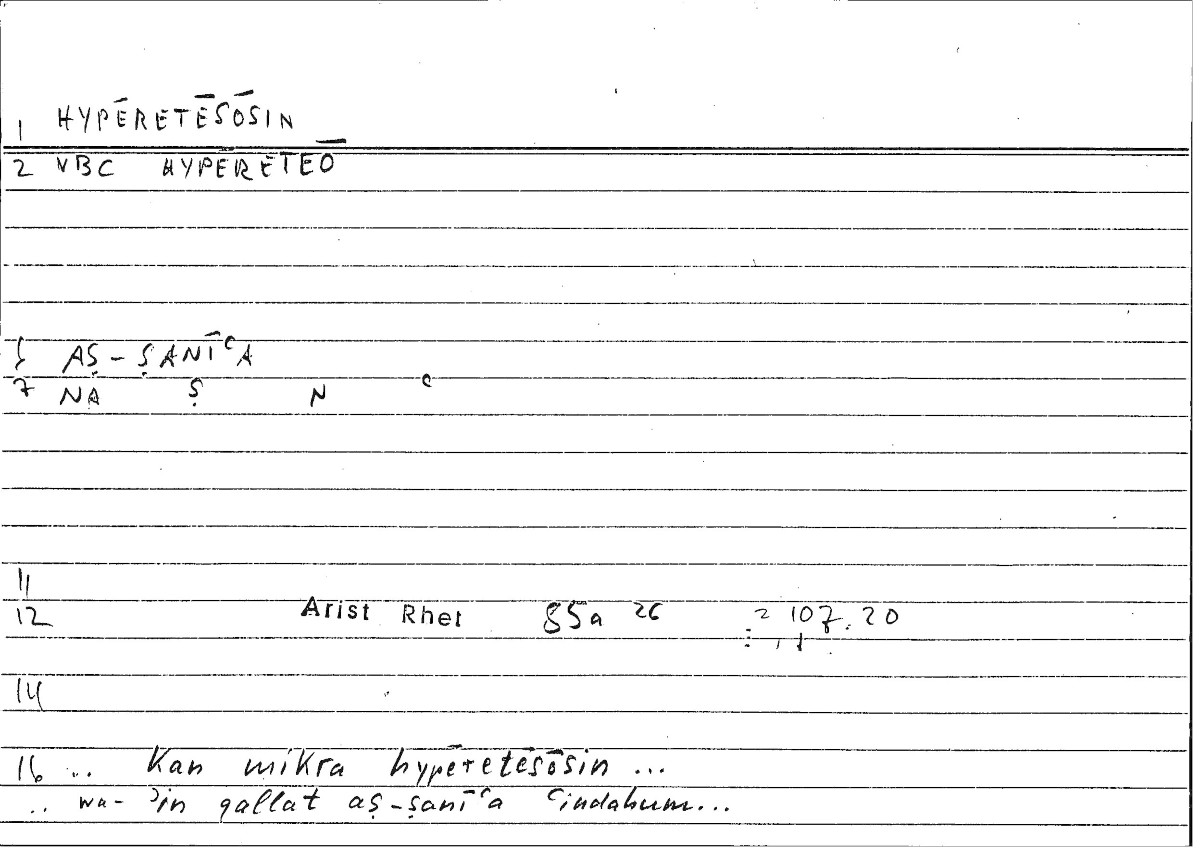 1 HYPĒRETĒSŌSIN
2 VBC HYPĒRETEŌ
AṢ-ṢANĪʿA
7 NA Ṣ N ʿ
11
12 Arist Rhet 85a 26 = 107.20
14
16 .. kan mikra hypēretēsōsin ...
.. wa-ʾin qallat aṣ-ṣanīʿa ʿindahum...